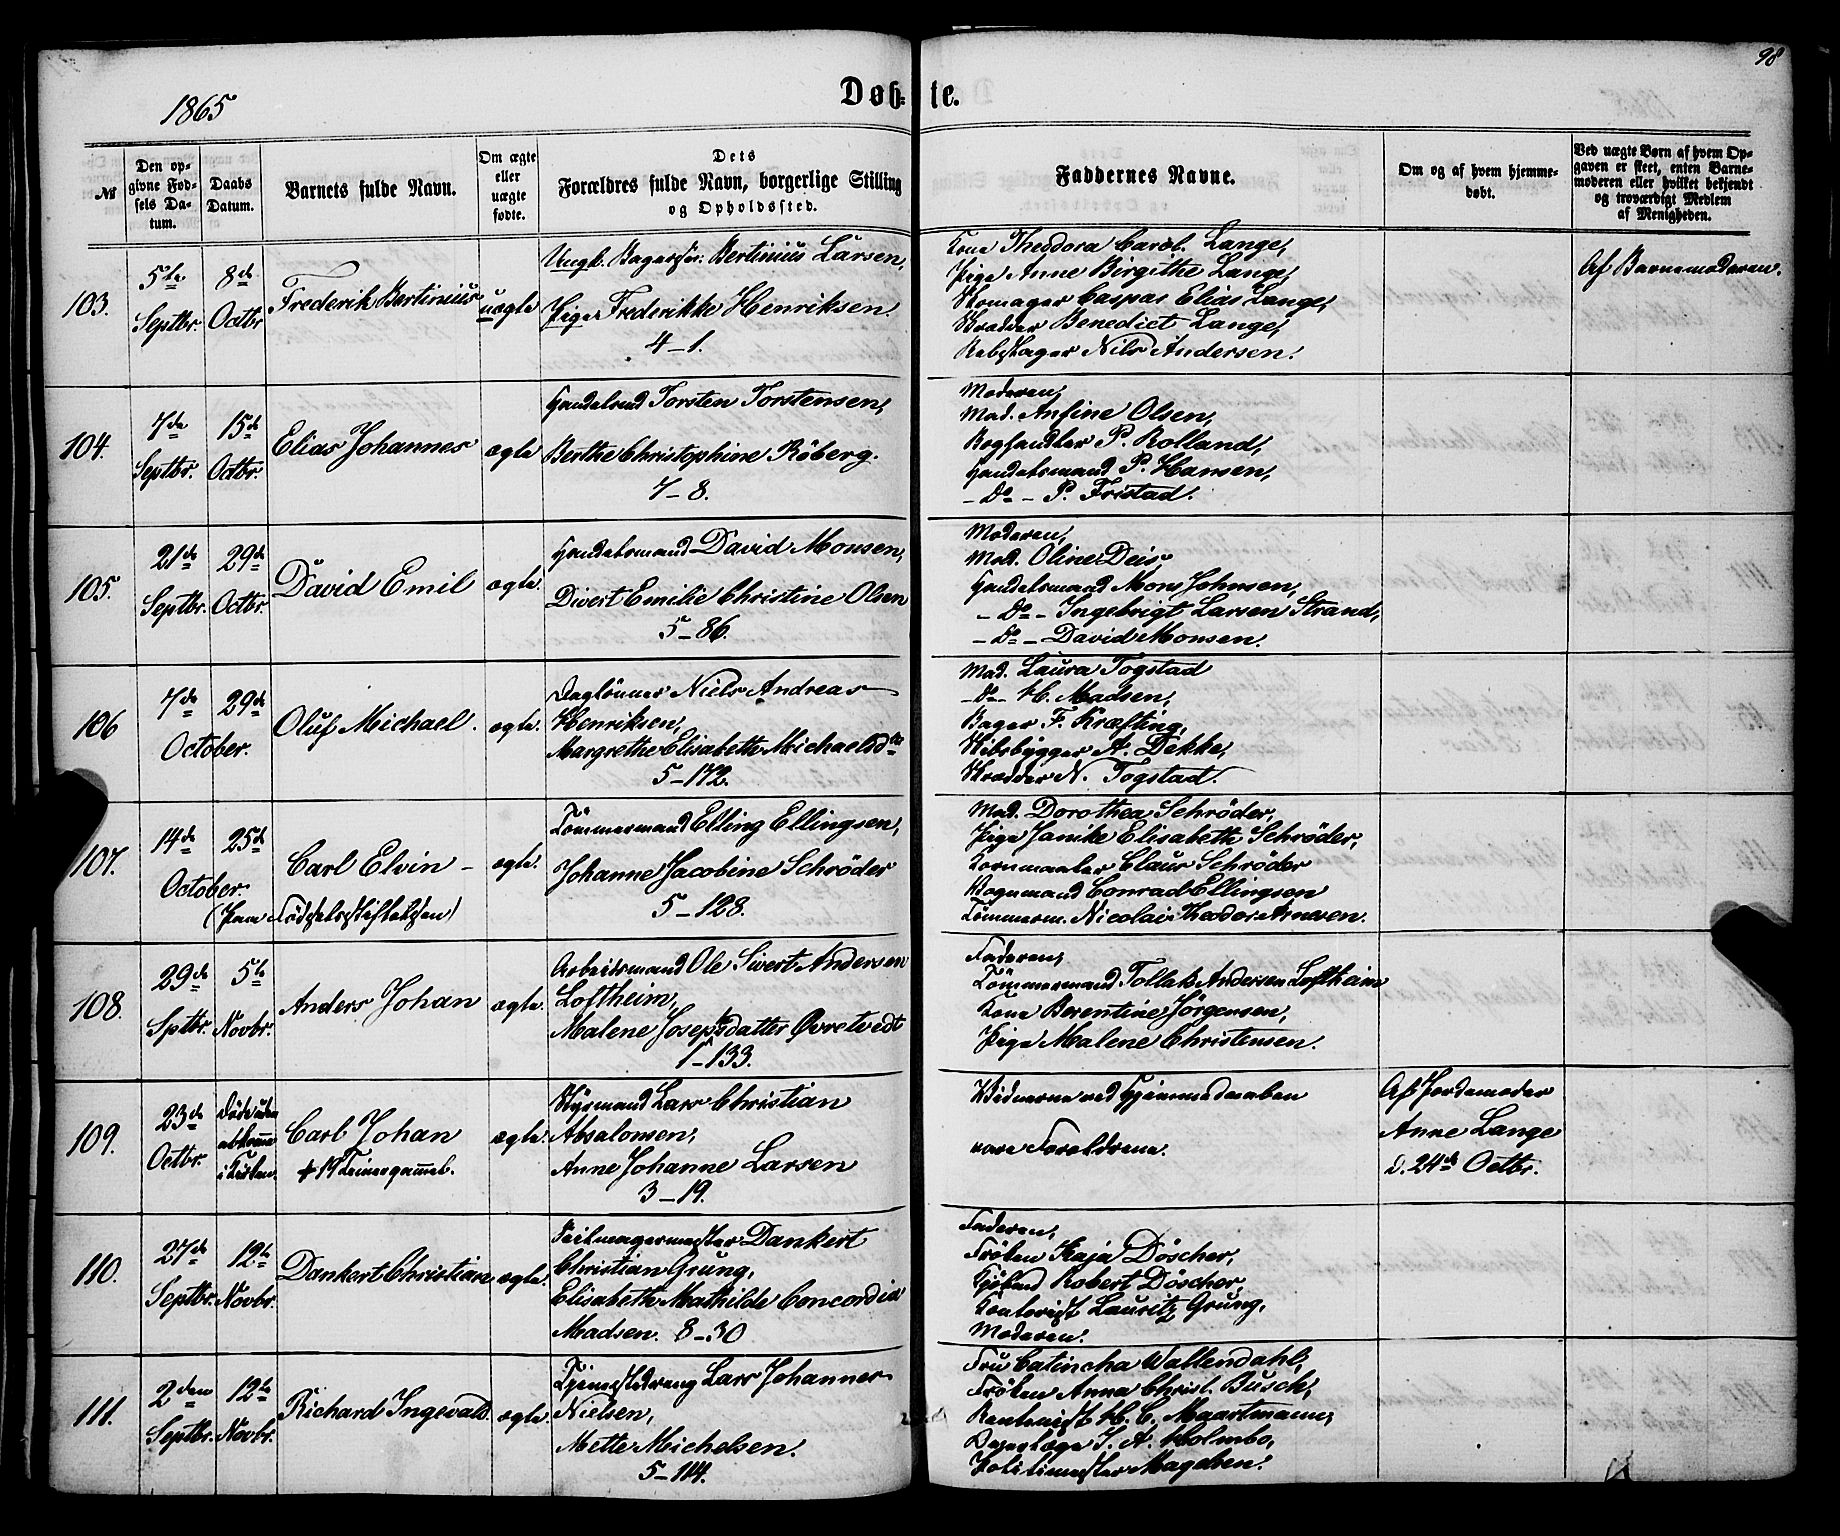 98
1865
Døb- te.
№
Den op-
givne Fød-
sels Da-
tum.
Daabs
Datum.
Barnets fulde Navn.
Om ægte
eller
uægte
fødte.
Dets
Forældres fulde Navn, borgerlige Stilling
og Opholdssted.
Faddernes Navne.
Om og af hvem hjemme-
døbt.
Ved uægte Børn af hvem Op-
gaven er skeet, enten Barne-
moderen eller hvilket bekjendt
og troværdigt Medlem
af Menigheden.
103.
5te
Septbr.
8de
Octbr
Frederik Bertinius
uægte
Ungk. Bagersv. Bertinius Larsen,
Pige Frederikke Henriksen.
4-1.
Kone Theodora Carol. Lange,
Pige Anne Birgithe Lange,
Skomager Caspar Elias Lange,
Skrædder Benedict Lange,
Rebslager Nils Andersen.
Af Barnemoderen.
104.
7de
Septbr.
15de
Octbr.
Elias Johannes
ægte
Handelsmd Torsten Torstensen,
Berthe Christophine Röberg.
7-8.
Moderen,
Mad. Anfine Olsen,
Boghandler P. Rolland,
Handelsmand P. Hansen,
- Do - P. Fristad.
105.
21de
Septbr.
29de
Octbr.
David Emil
ægte.
Handelsmand David Monsen,
Divert Emilie Christine Olsen
5-86.
Moderen,
Mad. Oline Deis,
Handelsmand Mons Johnsen,
- Do - Ingebrigt Larsen Strand,
- Do - David Monsen.
106
7de
29de
October.
Oluf Michael.
ægte.
Daglönner Niels Andreas
Henriksen,
Margrethe Elisabeth Michaelsdtr
5-172.
Mad. Laura Togstad
- Do - H. Madsen,
Bager F. Kræfting,
Skibsbygger A. Dekke,
Skrædder N. Togstad.
107.
14de
25de
October.
(Paa Födselsstiftelsen)
Carl Elvin -
ægte.
Tömmermand Elling Ellingsen,
Johanne Jacobine Schröder
5-128.
Mad. Dorothea Schröder,
Pige Janike Elisabeth Schröder,
Kornmaaler Claus Schröder
Vognmand Conrad Ellingsen
Tömmerm. Nicolai Theodor Arnesen.
108.
29de
Sptbr.
5te
Novbr.
Anders Johan
ægte.
Arbeidsmand Ole Sivert Andersen
Loftheim,
Malene Josephsdatter Øvretvedt
1-133.
Faderen,
Tömmermand Tollak Andersen Loftheim
Kone Berentine Jörgensen,
Pige Malene Christensen.
109.
23de
Octbr.
Döde uden
atkomme
i Kirken.
Carl Johan
† 19 Timer gammel.
ægte.
Styrmand Lars Christian
Absalonsen,
Anne Johanne Larsen
3-19.
Vidnerne ved Hjemmedaaben
vare Forældrene.
Af Jordemoder
Anne Lange
d. 24de Octbr.
110.
27de
Septbr.
12te
Novbr.
Dankert Christian
ægte.
Seilmagermester Dankert
Christian Grung,
Elisabeth Mathilde Concordia
Madsen. 8-30
Faderen,
Fröken Kaja Döscher,
Kjöbmd Robert Döscher
Contorist Lauritz Grung,
Moderen.
111.
2den
Septbr.
12te
Novbr.
Richard Ingevald.
ægte.
Tjenestedreng Lars Johannes
Nielsen,
Mette Michelsen.
5-114.
Fru Catincha Wallendahl,
Fröken Anna Christ. Busch,
H. C. Maartmann,
J. A. Holmbo,
Politimester Magelsen.